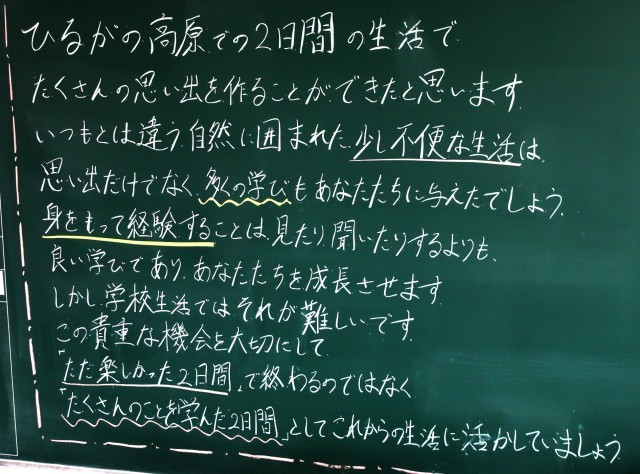 ひるがの高原での2日間の生活で
たくさんの思い出を作ることができたと思います.
いつもとは違う自然に囲まれた少し不便な生活は、
思い出だけでなく、多くの学びもあなたたちに与えたでしょう.
身をもって経験することは、見たり、聞いたりするよりも、
良い学びであり、あなたたちを成長させます
しかし、学校生活ではそれが難しいです
この貴重な機会を大切にして
「ただ楽しかった2日間」で終わるのではなく
「たくさんのことを学んだ2日間」としてこれからの生活に活かしていましょう